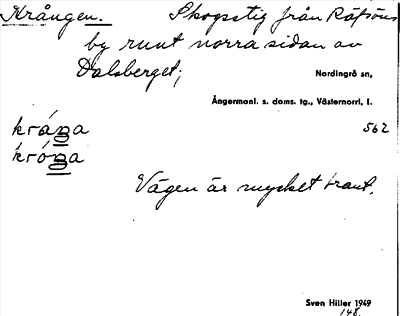 Krången. Skogsstig från Räfsöns
by runt norra sidan av
Dalsberget;
Nordingrå sn,
Ångermanl. s. doms. tg., Västernorrl. l.
562
Vägen är mycket brant.
Sven Hiller 1949
148.